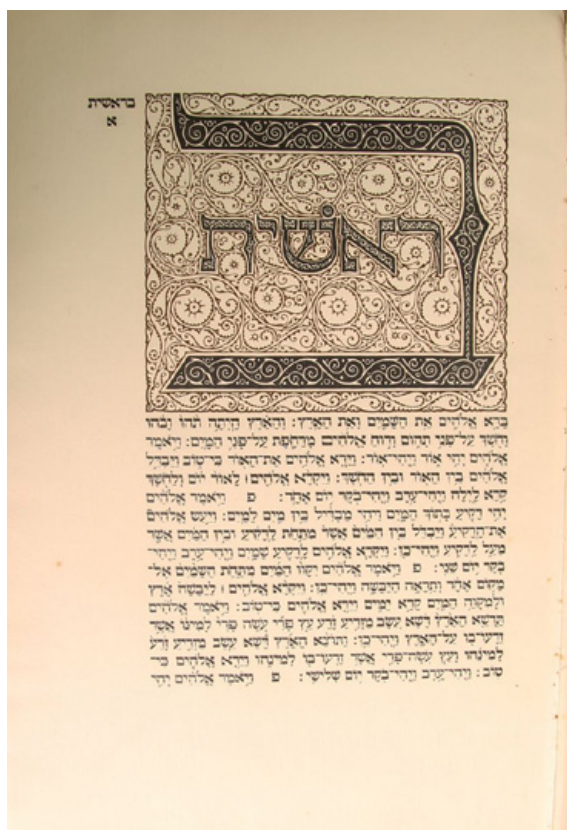 בראשית
א
בראשית
בָּרָא אֱלֹהִים אֵת הַשָּׁמַיִם וְאֵת הָאָרֶץ: וְהָאָרֶץ הָיְתָה תֹהוּ וָבֹהוּ
וְחֹשֶׁךְ עַל־פְּנֵי תְהוֹם וְרוּחַ אֱלֹהִים מְרַחֶפֶת עַל־פְּנֵי הַמָּיִם: וַיֹּאמֶר
אֱלֹהִים יְהִי אוֹר וַיְהִי־אוֹר: וַיַּרְא אֱלֹהִים אֶת־הָאוֹר כִּי־טוֹב וַיַּבְדֵּל
אֱלֹהִים בֵּין הָאוֹר וּבֵין הַחֹשֶׁךְ: וַיִּקְרָא אֱלֹהִים׀ לָאוֹר יוֹם וְלַחֹשֶׁךְ
קָרָא לָיְלָה וַיְהִי־עֶרֶב וַיְהִי־בֹקֶר יוֹם אֶחָד: פ וַיֹּאמֶר אֱלֹהִים
יְהִי רָקִיעַ בְּתוֹךְ הַמָּיִם וִיהִי מַבְדִּיל בֵּין מַיִם לָמָיִם: וַיַּעַשׂ אֱלֹהִים
אֶת־הָרָקִיעַ וַיַּבְדֵּל בֵּין הַמַּיִם אֲשֶׁר מִתַּחַת לָרָקִיעַ וּבֵין הַמַּיִם אֲשֶׁר
מֵעַל לָרָקִיעַ וַיְהִי־כֵן: וַיִּקְרָא אֱלֹהִים לָרָקִיעַ שָׁמָיִם וַיְהִי־עֶרֶב וַיְהִי־
בֹקֶר יוֹם שֵׁנִי: פ וַיֹּאמֶר אֱלֹהִים יִקָּווּ הַמַּיִם מִתַּחַת הַשָּׁמַיִם אֶל־
מָקוֹם אֶחָד וְתֵרָאֶה הַיַּבָּשָׁה וַיְהִי־כֵן: וַיִּקְרָא אֱלֹהִים׀ לַיַּבָּשָׁה אֶרֶץ
וּלְמִקְוֵה הַמַּיִם קָרָא יַמִּים וַיַּרְא אֱלֹהִים כִּי־טוֹב: וַיֹּאמֶר אֱלֹהִים
תַּדְשֵׁא הָאָרֶץ דֶּשֶׁא עֵשֶׂב מַזְרִיעַ זֶרַע עֵץ פְּרִי עֹשֶׂה פְּרִי לְמִינוֹ אֲשֶׁר
זַרְעוֹ־בוֹ עַל־הָאָרֶץ וַיְהִי־כֵן: וַתּוֹצֵא הָאָרֶץ דֶּשֶׁא עֵשֶׂב מַזְרִיעַ זֶרַע
לְמִינֵהוּ וְעֵץ עֹשֶׂה־פְּרִי אֲשֶׁר זַרְעוֹ־בוֹ לְמִינֵהוּ וַיַּרְא אֱלֹהִים כִּי־
טוֹב: וַיְהִי־עֶרֶב וַיְהִי־בֹקֶר יוֹם שְׁלִישִׁי: פ וַיֹּאמֶר אֱלֹהִים יְהִי